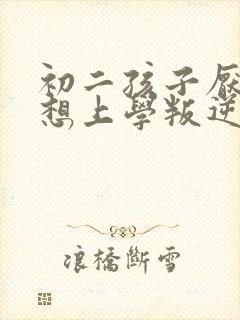 初二孩子厌
想上學叛逆
浪橋斷雪